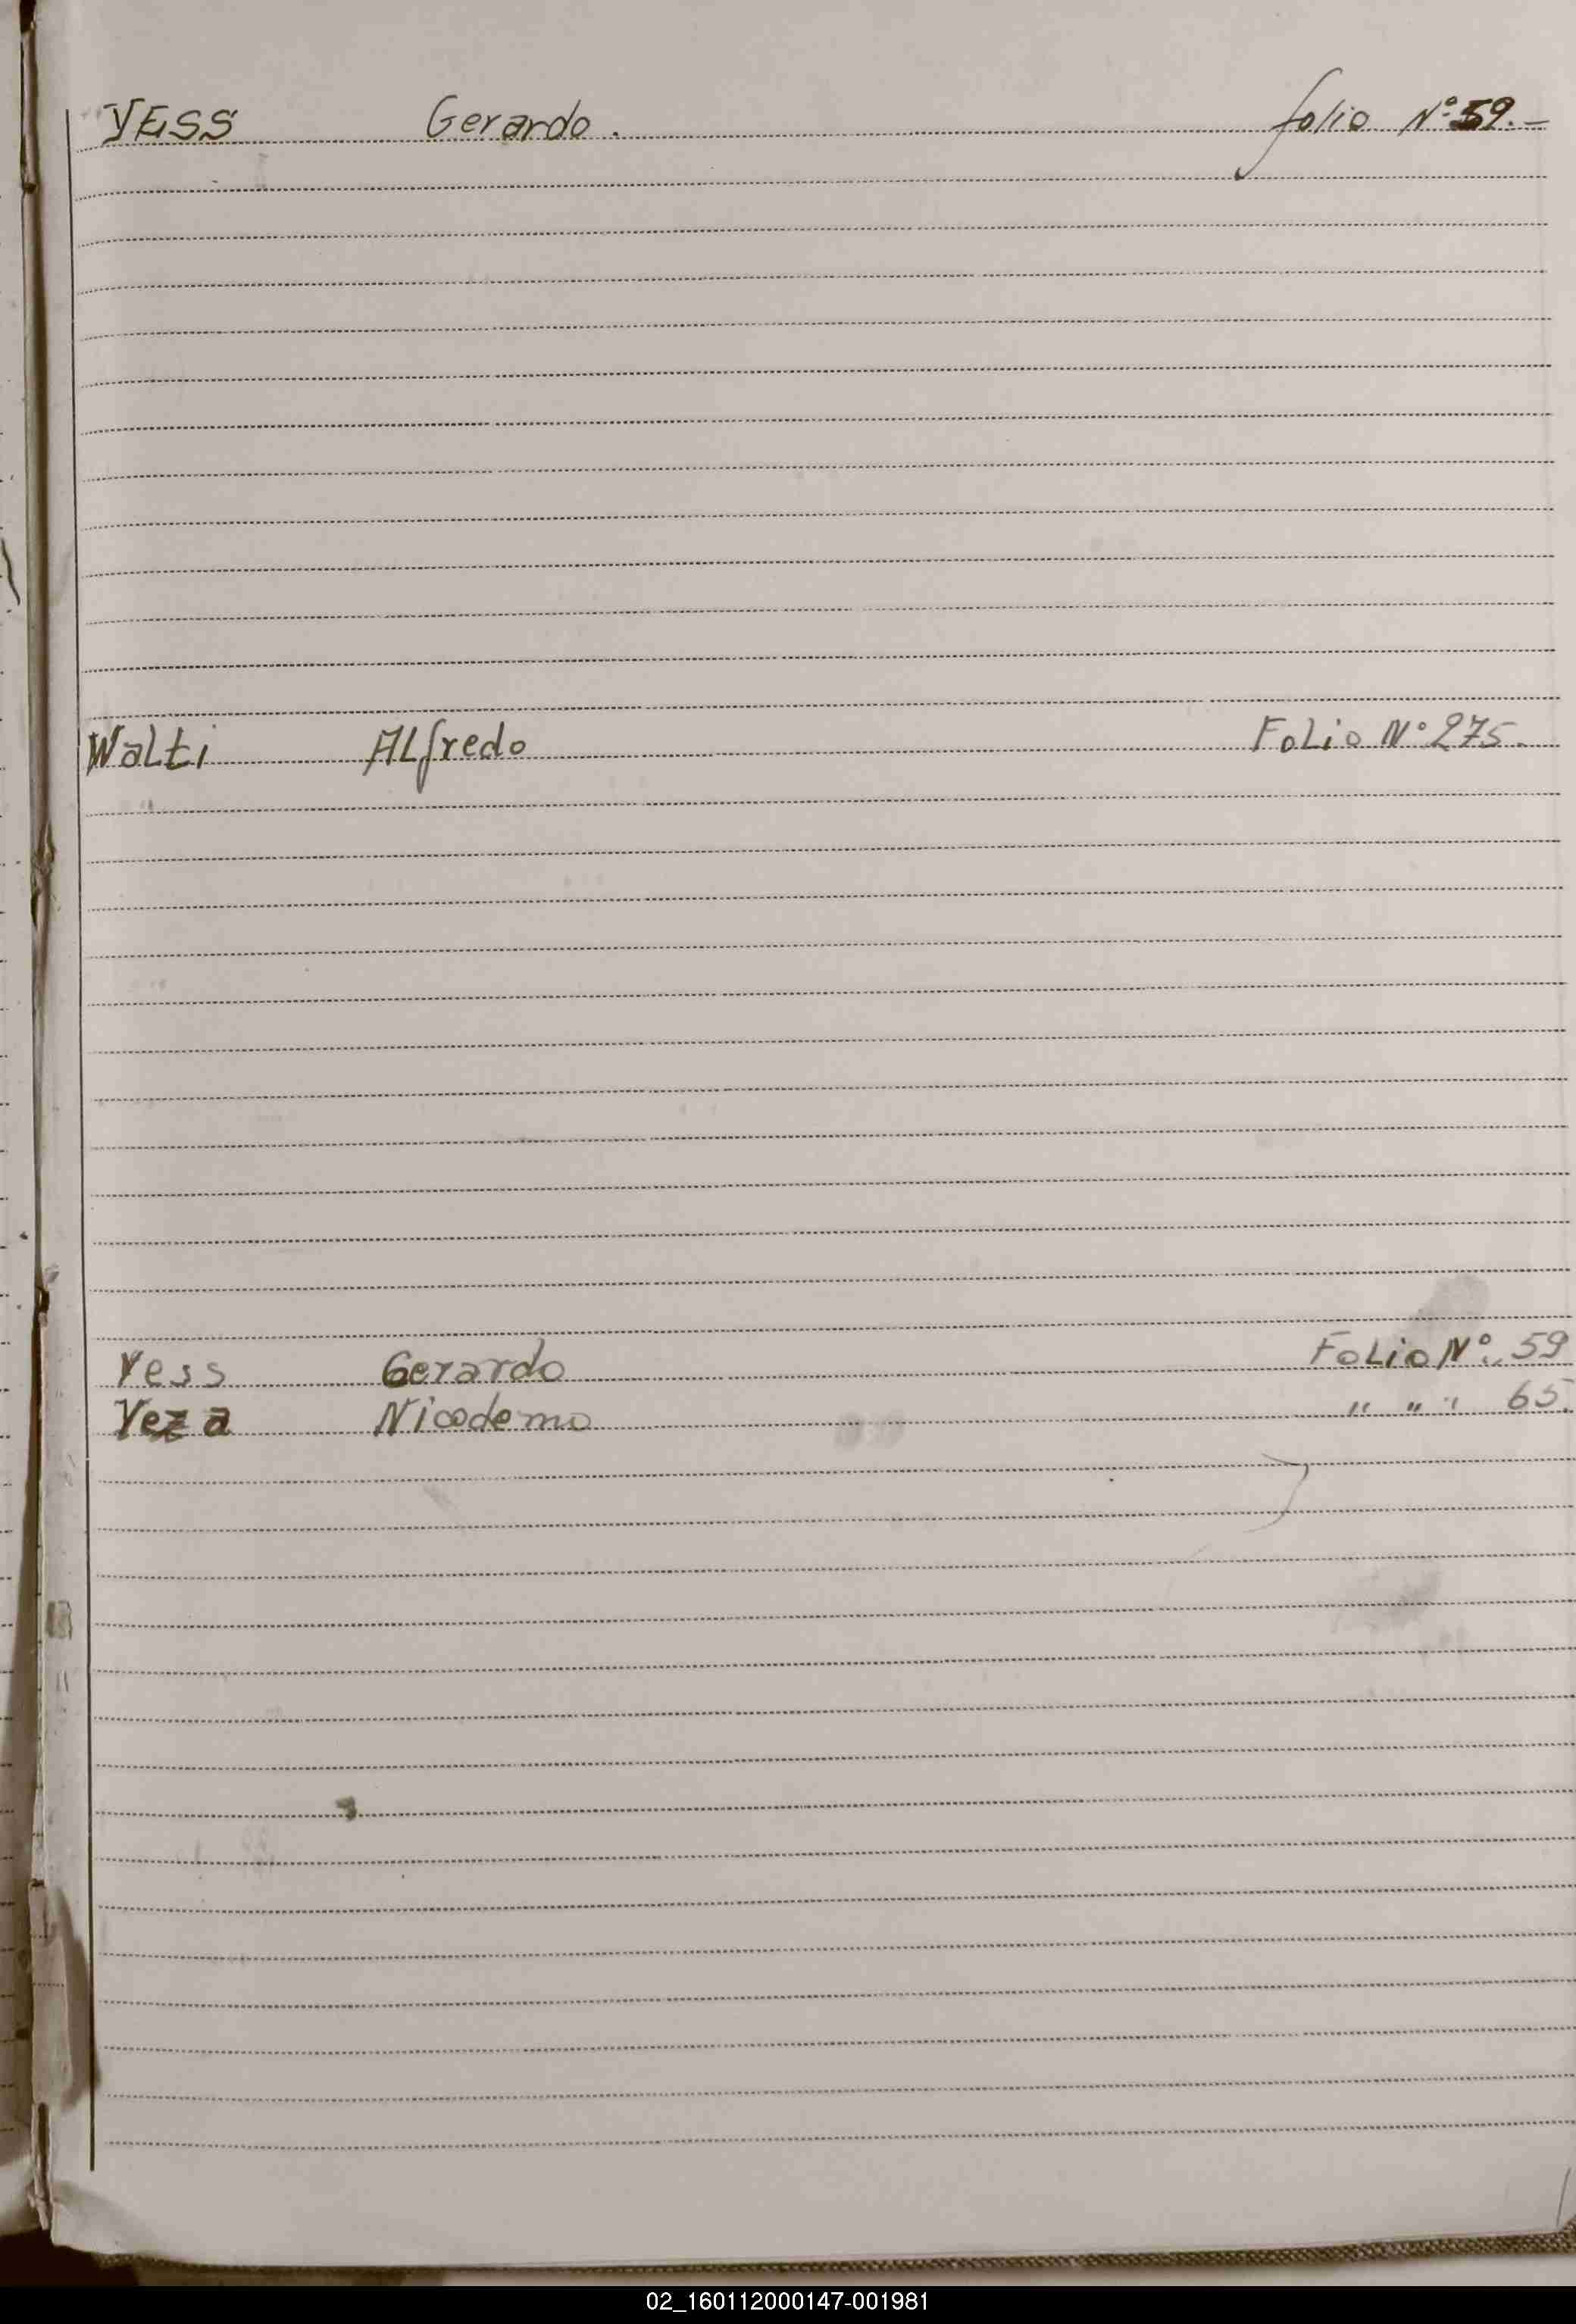 YESS Gerardo. folio Nº 59.-
Walti ALfredo FoLio Nº 275.
Yess Gerardo FoLio Nº 59
Yeza Nicodemo " " " 65.
02_160112000147-001981